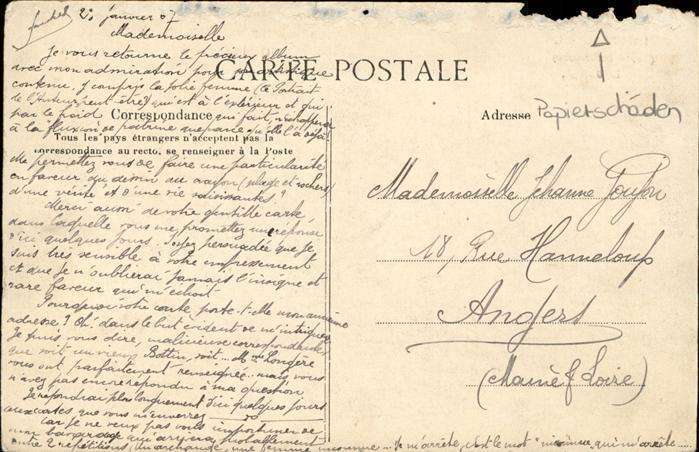 2 janvier 07
Mademoiselle
Je vous retourne le précieux album
avec mon admiration pour
contenu. J'
qui est à l'extérieur et qui
par le froid
à la fluxion de poitrine
CARTE POSTALE
Correspondance
Tous les pays étrangers n'acceptent pas la
correspondance au recto, se renseigner à la Poste
Me permettez vous de faire une particularité
en faveur du dessin au crayon
d'une vérité et d'une vie saisissantes ?
Merci aussi de votre gentille carte
dans laquelle vous me promettez une réponse
d'ici quelques jours. Soyez persuadée que je
suis très sensible à votre empressement
et que je n'oublierai jamais l'insigne et
rare faveur qui m'échoit
Pourquoi votre carte porte-t-elle mon ancienne
adresse ? Oh! dans le but évident de m'intriguer
Je puis vous dire, malicieuse correspondante,
que soit un vieux Bottin, soit... Mme Longère
vous ont parfaitement renseignée - mais vous
n'avez pas encore répondu à ma question
Je répondrai plus longuement d'ici quelques jours
aux cartes que vous m'
Car je ne veux pas vous importuner de
mon bavardage qui arrivera probablement
entre 2 répétitions, un
une femme inconnue... Je m'arrête, c'est le mot "inconnue, qui m'arrête
Adresse
Papierschäden
Mademoiselle Jehanne Goujon
18, Rue Hanneloup
Angers
(Maine & Loire)